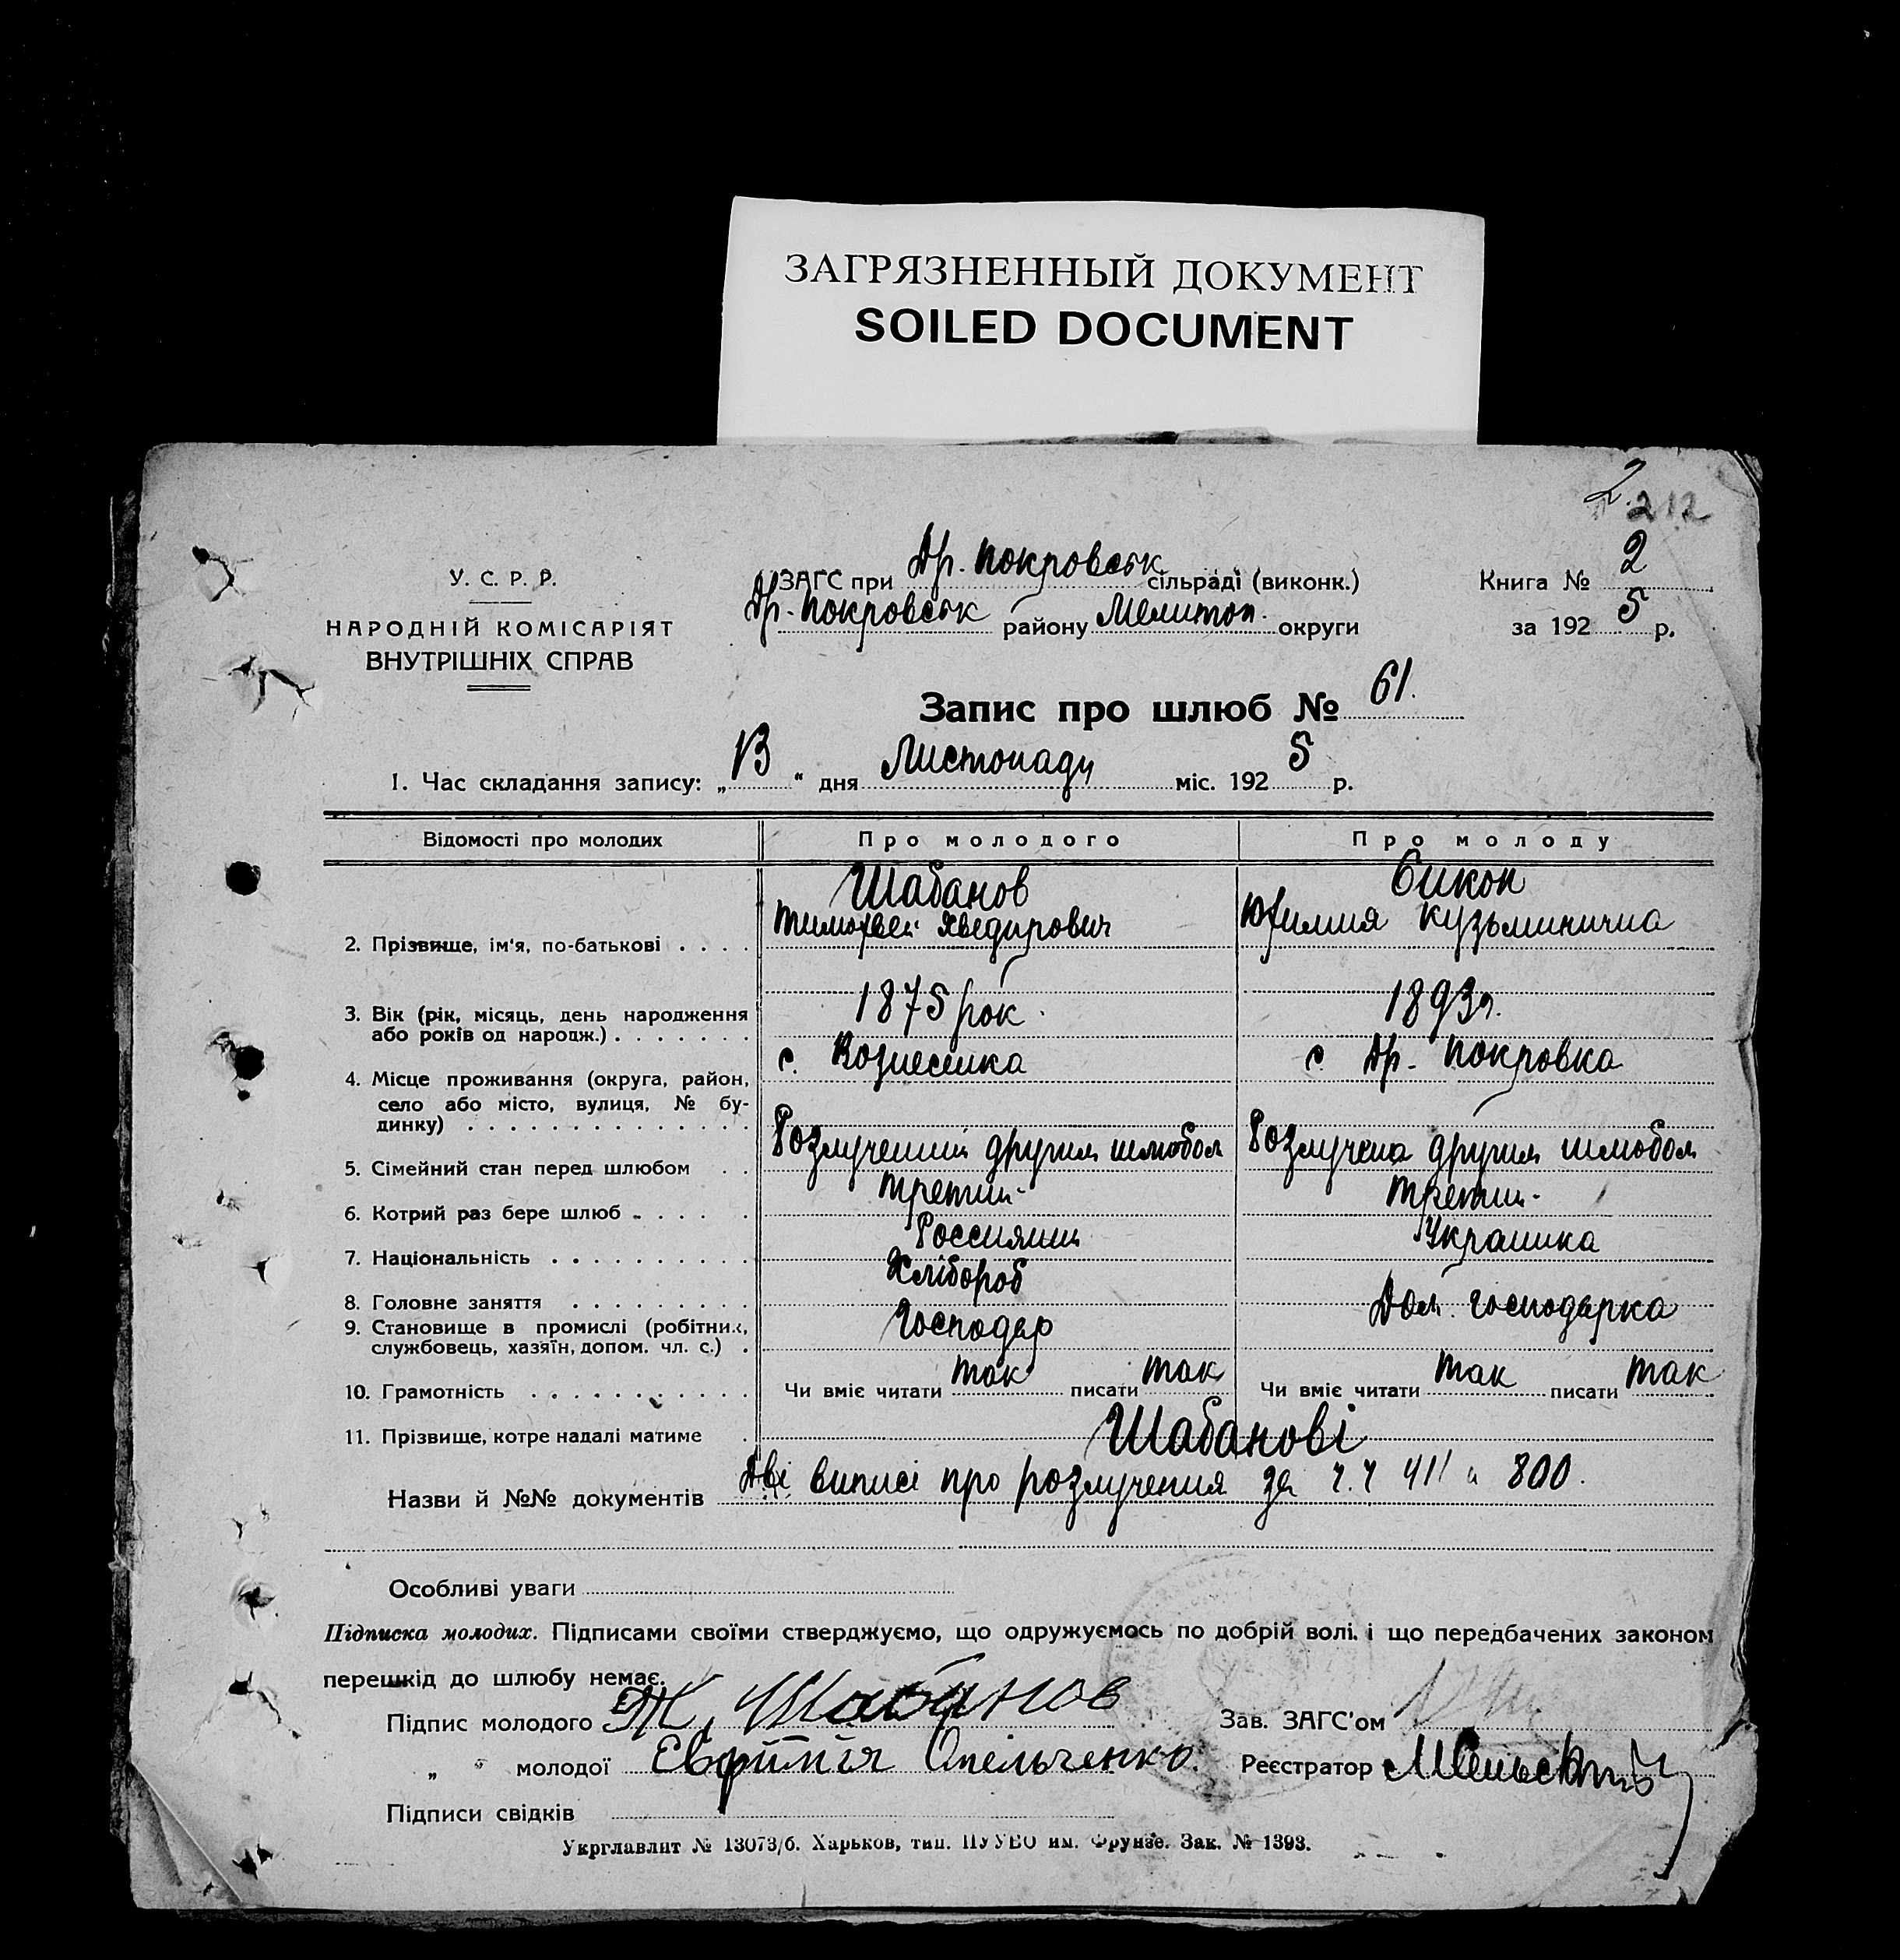 ЗАГРЯЗНЕННЫЙ ДОКУМЕНТ
SOILED DOCUMENT
2.
212
У. С. Р. Р.
НАРОДНІЙ КОМІСАРІЯТ
ВНУТРІШНІХ СПРАВ
ЗАГС при Др. Покровськ сільраді (виконк.)
Др. Покровськ району Мелитоп. округи
Книга № 2
за 1925 р.
Запис про шлюб № 61.
1. Час складання запису: „13“ дня Листопаду міс. 1925 р.
Відомості про молодих Про молодого Про молоду
2. Прізвище, ім'я, по-батькові . . . . Шабанов Тимофвей Хведирович
Кузьминична
3. Вік (рік, місяць, день народження
або років од народж.) . . . . . . . 1875 рок. 1893 р.
4. Місце проживання (округа, район,
село або місто, вулиця, № бу-
динку) . . . . . . . . . . . . . . с. Вознесенка с Др. Покровка
5. Сімейний стан перед шлюбом . . Розлученний другим шлюбом Розлучена другим шлюбом
6. Котрий раз бере шлюб . . . . . третий третий
7. Національність . . . . . . . . . . Россиянин Украинка
8. Головне заняття . . . . . . . . . Хлібороб Дом. господарка
9. Становище в промислі (робітник,
службовець, хазяїн, допом. чл. с.) . Господар
10. Грамотність . . . . . . . . . . . Чи вміє читати так писати так Чи вміє читати так писати так
11. Прізвище, котре надалі матиме . Шабанові
Назви й №№ документів Дві виписі про розлучения за ч.ч 411 и 800.
Особливі уваги
Підписка молодих. Підписами своїми стверджуємо, що одружуємось по добрій волі. і що передбачених законом
перешкід до шлюбу немає.
Підпис молодого Шабанов Зав. ЗАГС'ом
„ „ молодої Евфимія Омельченко. Реєстратор
Підписи свідків
Укрглавлит № 13073/б. Харьков, тип. ПУУВО им. Фрунзе. Зак. № 1393.